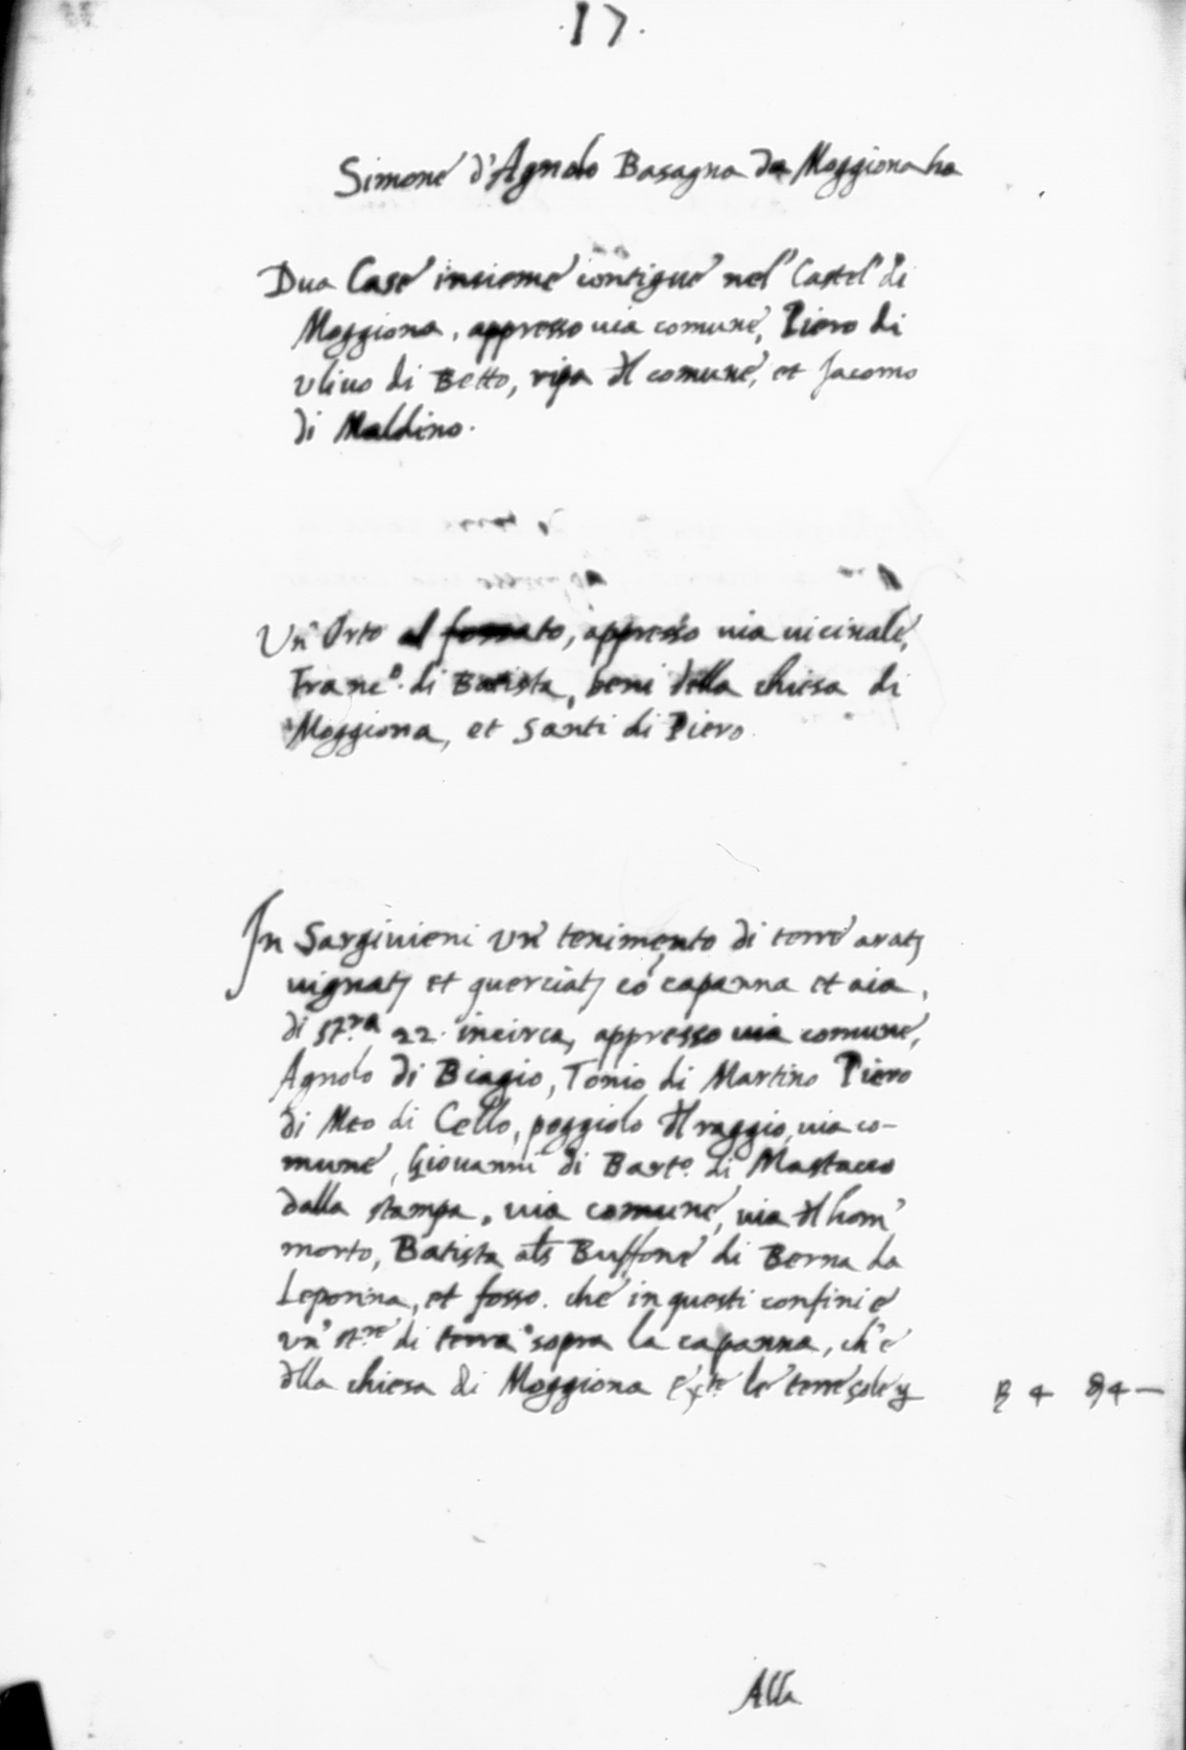 .17.
Simone d'Agnolo Basagna da Moggiona ha
Dua Case insieme contigue nel Castel di
Moggiona, appresso uia comune, Piero di
uliuo di Betto, ripa dl comune, et Jacomo
di Maldino.
Un Orto al fossato, appresso uia uicinale,
Franc.o di Batista, beni della chiesa di
Moggiona, et Santi di Piero
In Sarginieni un tenimento di terre arat;
uignat; et querciat; cō capanna et aia,
di st.ra 22 incirca, appresso uia comune,
Agnolo di Biagio, Tonio di Martino Piero
di Meo di Cello, poggiolo dl raggio, uia co-
mune, Giouanni di Bart.o di Mastacco
dalla stampa, uia comune, uia dl hom'
morto, Batista als Buffone di Berna da
Leporina, et fosso. che in questi confini e
un' st.re di terra sopra la capanna, ch'e
dlla chiesa di Moggiona le terre sole
4 4 —
Alla